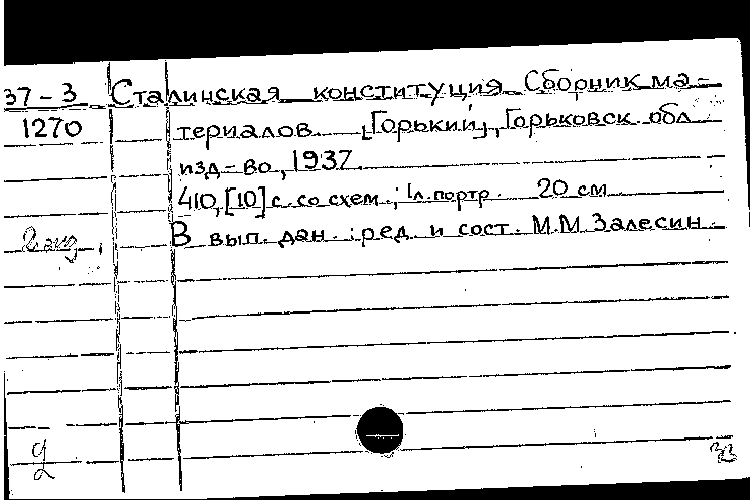 37-3 Сталинская конституция Сборник ма-
1270 териалов. [Горький], Горьковск. обл
изд-во, 1937.
410, [10] с. со схем.; 1 л. портр. 20 см
2 экз. В вып. дан.: ред. и сост. М.М. Залесин.